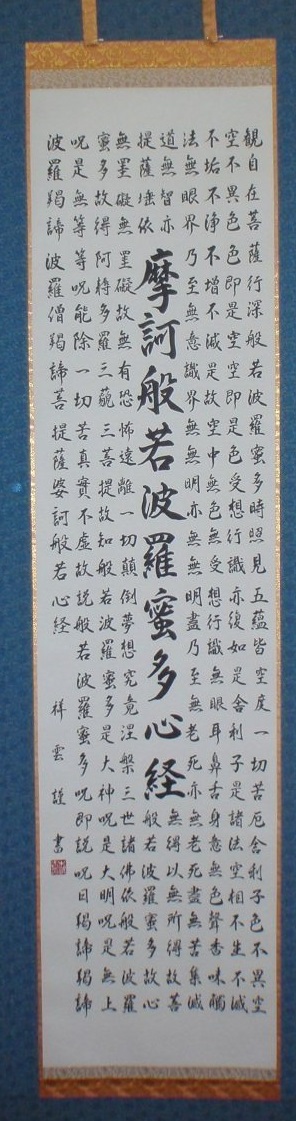 摩訶般若波羅蜜多心経
観自在菩薩行深般若波羅蜜多時照見五蘊皆空度一切苦厄舎利子色不異空
空不異色色即是空空即是色受想行識亦復如是舎利子是諸法空相不生不滅
不垢不浄不増不減是故空中無色無受想行識無眼耳鼻舌身意無色聲香味觸
法無眼界乃至無意識界無無明亦無無明盡乃至無老死亦無老死盡無苦集滅
道無智亦無得以無所得故菩
提薩埵依般若波羅蜜多故心
無罣礙無罣礙故無有恐怖遠離一切顛倒夢想究竟涅槃三世諸佛依般若波羅
蜜多故得阿耨多羅三藐三菩提故知般若波羅蜜多是大神呪是大明呪是無上
呪是無等等呪能除一切苦真實不虚故説般若波羅蜜多呪即説呪曰羯諦羯諦
波羅羯諦波羅僧羯諦菩提薩婆訶般若心経
祥雲謹書